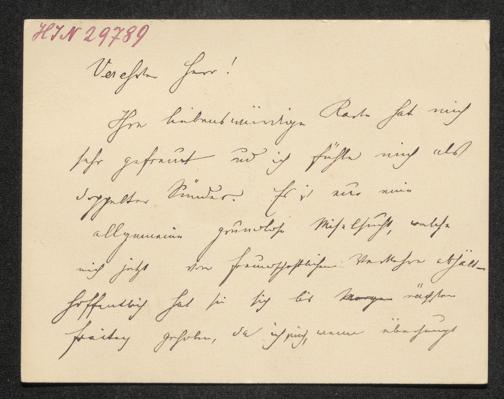 HIN 29789
Verehrter Herr!
Ihre liebenswürdige Karte hat mich
sehr gefreut und ich fühle mich als
doppelter Sünder. Es ist nur eine
allgemeine grundlose Miselsucht, welche
mich jetzt von freundschaftlichem Verkehre abhält
hoffentlich hat sie sich bis morgen nächsten
Freitag gehoben, da ich mich, wenn überhaupt